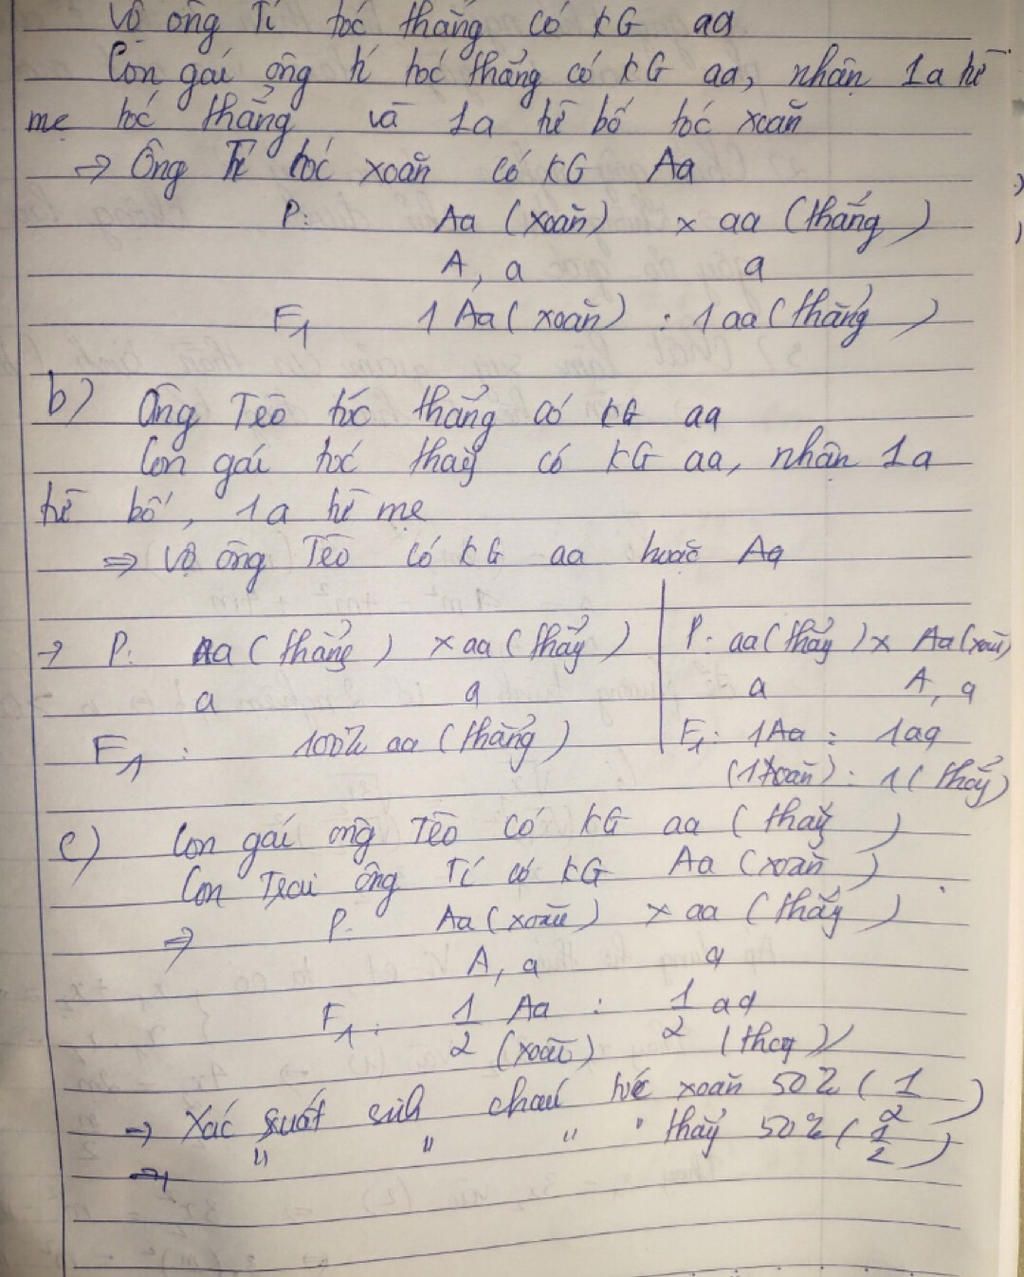 Vợ ông Tí tóc thẳng có KG aa
Con gái ông tí tóc thẳng có KG aa, nhận 1a từ
mẹ tóc thẳng và 1a từ bố tóc xoăn
=> Ông Tí tóc xoăn có KG Aa
P: Aa (xoăn) x aa (thẳng)
A, a a
F1 1 Aa (xoăn) : 1 aa (thẳng)
b) Ông Tèo tóc thẳng có KG aa
Con gái tóc thẳng có KG aa, nhận 1a
từ bố, 1a từ mẹ
=> Vợ ông Tèo có KG aa hoặc Aa
-> P: aa (thẳng) x aa (thẳng)
a a
F1 : 100% aa (thẳng)
P: aa (thẳng) x Aa (xoăn)
a A, a
F1: 1Aa : 1aa
(1 xoăn) : 1 (thẳng)
c) Con gái ông Tèo có KG aa (thẳng)
Con Trai ông Tí có KG Aa (xoăn)
=> P: Aa (xoăn) x aa (thẳng)
A, a a
F1: 1/2 Aa : 1/2 aa
(xoăn) (thẳng)
=> Xác suất sinh cháu tóc xoăn 50% (1/2)
" " " " thẳng 50% (1/2)